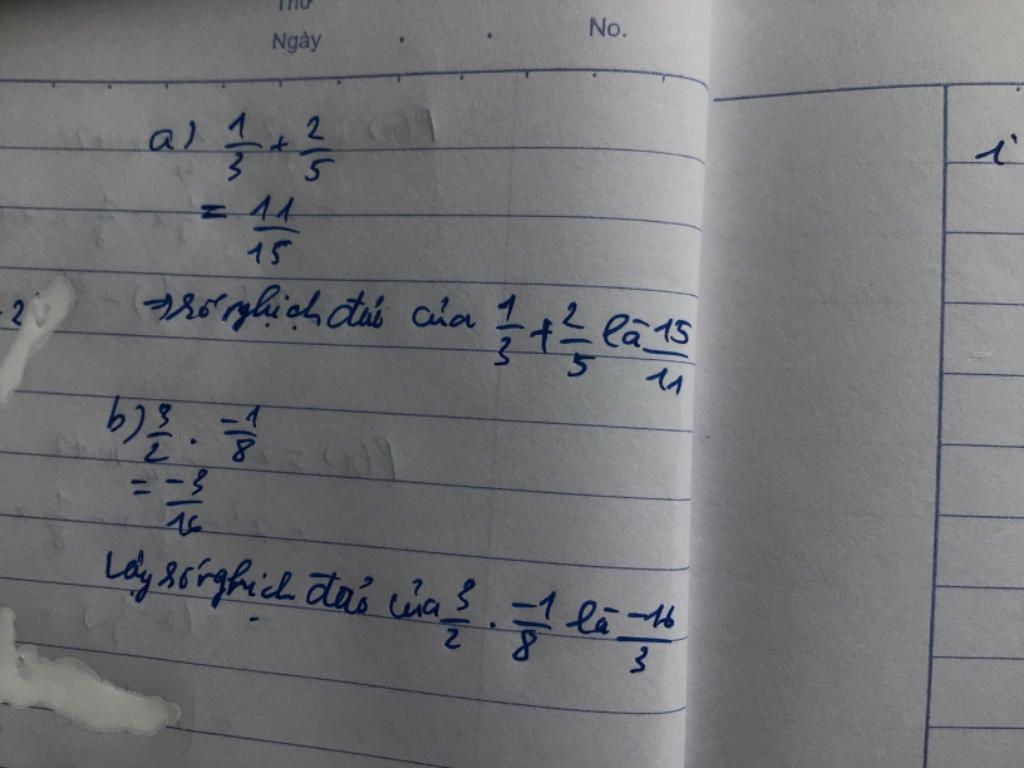 Thứ
Ngày . .
No.
a) 1/3 + 2/5
= 11/15
⇒ số nghịch đảo của 1/3 + 2/5 là 15/11
b) 3/2 . -1/8
= -3/16
Vậy số nghịch đảo của 3/2 . -1/8 là -16/3
2